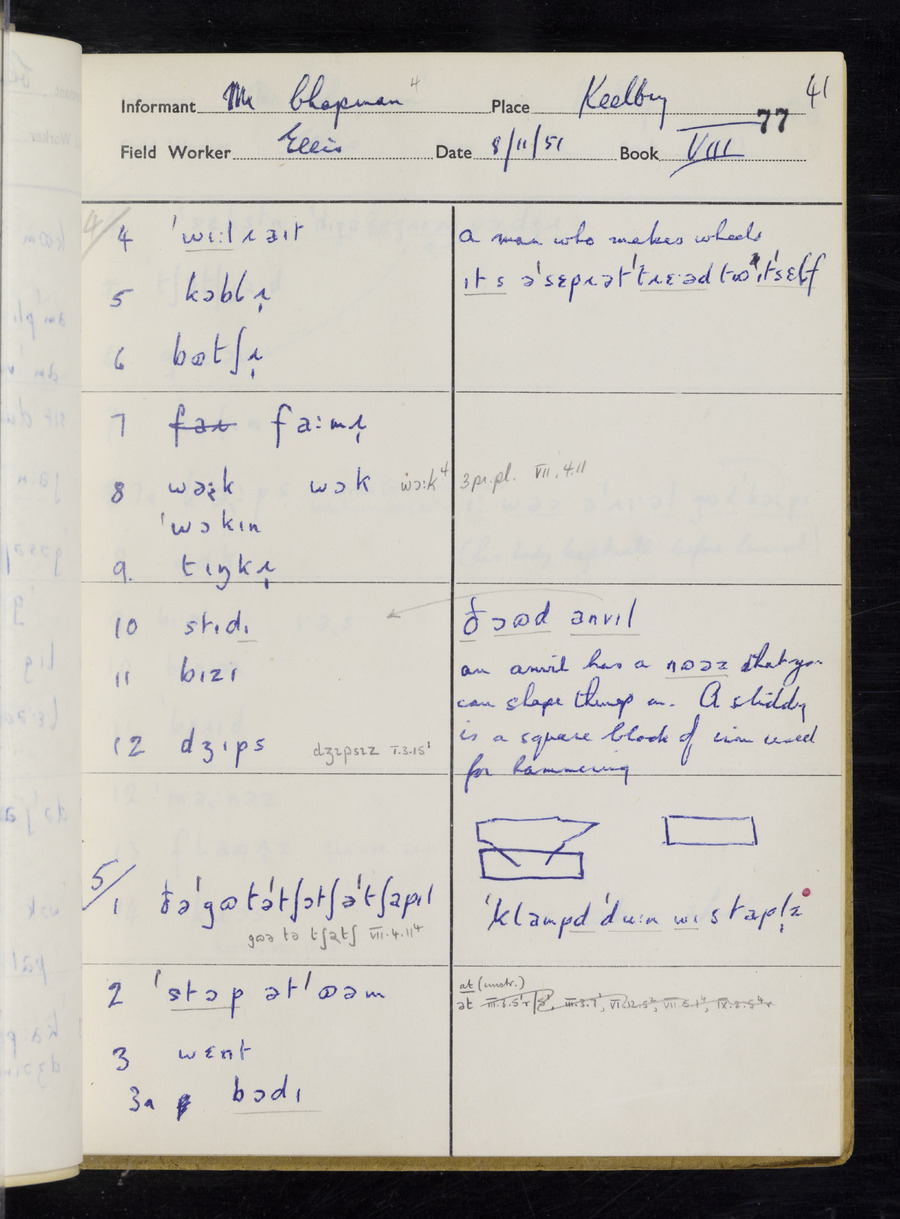 41
Informant Mr Chapman 4 Place Keelby
77
Field Worker Ellis Date 8/11/51 Book VIII
4/
4 ˈwiːlɹaɪt a man who makes wheels
5 kɔblɹ̩ ɪts əˈsɛpɹətˈtɹɛəd
6 bʊtʃɹ̩
7 faːmɹ̩
8 wəːk wɔk wɔːk 4 3 pr. pl. VII.4.11
ˈwɔkɪn
9. tɪŋkɹ̩
10 stɪdɪ ðɔʊd anvɪl
11 bɪzɪ an anvil has a nɔəz that you
can shape things on. A stiddy
12 dʒɪps dʒɪpsɪz I.3.15¹ is a square block of iron used
for hammering
5/
1 ðəˈgʊtəˈtʃɔtʃəˈtʃapɪl ˈklampdˈduːn wɪ stapl̩z
gʊə tə tʃətʃ VII.4.11⁴
2 ˈstɔp ətˈʊəm at (unstr.)
ət
3 wɛnt
3a bɔdɪ